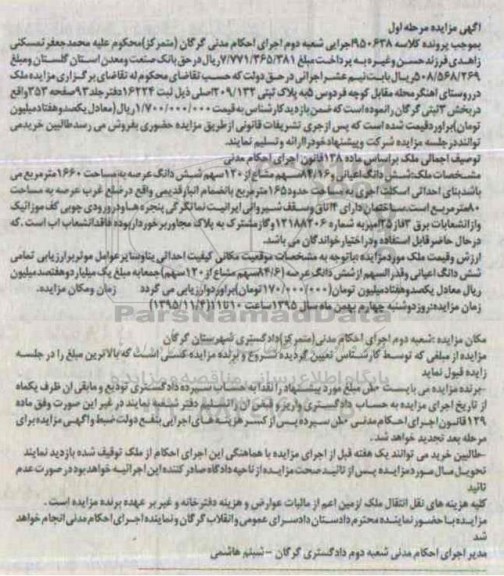 آگهی مزایده مرحله اول
بموجب پرونده کلاسه ۹۵۰۶۳۸اجرایی شعبه دوم اجرای احکام مدنی گرگان (متمرکز)محکوم علیه محمدجعفر تمسکنی
زاهدی فرزند حسن وغیره به پرداخت مبلغ ۷/۷۷۱/۳۶۵/۳۸۱ریال در حق بانک صنعت ومعدن استان گلستان ومبلغ
۵۰۸/۵۶۸/۲۶۹ریال بابت نیم عشر اجرائی در حق دولت که حسب تقاضای محکوم له تقاضای برگزاری مزایده ملک
در روستای اهنگر محله مقابل کوچه فردوس ۵به پلاک ثبتی ۲۰۹/۱۳۲اصلی ذیل ثبت ۱۶۲۲۴دفتر جلد ۹۳صفحه ۲۵۳واقع
در بخش ۳ثبتی گرگان رانموده است که ضمن بازدید کارشناس به قیمت ۱/۷۰۰/۰۰۰/۰۰۰ریال(معادل یکصدوهفتادمیلیون
تومان)براوردقیمت شده است که پس ازجری تشریفات قانونی ازطریق مزایده حضوری بفروش می رسدطالبین خریدمی
توانند در جلسه مزایده شرکت وپیشنهادخودراارائه و تسلیم نمایند.
توصیف اجمالی ملک براساس ماده ۱۳۸قانون اجرای احکام مدنی
مشخصات ملک:شش دانگ اعیانی و۸۴/۱۶سهم مشاع از ۱۲۰سهم شش دانگ عرصه به مساحت ۱۶۶۰مترمربع می
باشدبنای احداثی اسکلت اجری به مساحت حدود۱۶۵مترمربع بانضمام انبارقدیمی واقع درضلع غرب عرصه به مساحت
۸۰مترمربع است.ساختمان دارای ۴اتاق وسقف شیروانی ایرانیت نماگرگی پنجره هاودرورودی چوبی کف موزائیک
وازانشعابات برق ۳فاز۲۵امپربه شماره ۱۲۱۸۸۲۰۶وگازمشترک به پلاک مجاوربرخورداربوده فاقدانشعاب اب است .که
درحال حاضرقابل استفاده ودراختیارخواندگان می باشد.
ارزش وقیمت ملک موردمزایده :باتوجه به مشخصات موقعیت مکانی کیفیت احداثی بناوسایرعوامل موثربرارزیابی تمامی
شش دانگ اعیانی وقدرالسهم ازشش دانگ عرصه (۸۴/۶سهم مشاع از۱۲۰سهم)جمعابه مبلغ یک میلیاردوهفتصدمیلیون
ریال معادل یکصدوهفتادمیلیون تومان(۱۷۰/۰۰۰/۰۰۰تومان)براوردوارزیابی می گردد زمان ومکان مزایده.
زمان مزایده:روزدوشنبه چهارم بهمن ماه سال ۱۳۹۵ساعت ۱۰تا۱۱(۱۳۹۵/۱۱/۴)
ParsNamadData
مکان مزایده :شعبه دوم اجرای احکام مدنی(متمرکز)دادگستری شهرستان گرگان
مزایده از مبلغی که توسط کارشناس تعیین گردیده شروع و برنده مزایده کسی است که بالاترین مبلغ را در جلسه
مزایده قبول نماید
-برنده مزایده می بایست ۱۰٪ مبلغ مورد پیشنهاد را نقدا به حساب سپرده دادگستری تودیع و مابقی ان ظرف یکماه
از تاریخ اجرای مزایده به حساب دادگستری واریز و قبض ان را تسلیم دفتر شعبه نمایند در غیر این صورت وفق ماده
۱۲۹قانون اجرای احکام مدنی ۱۰٪ سپرده پس از کسر هزینه های اجرایی بنفع دولت ضبط و اگهی مزایده برای
مرحله بعد تجدید خواهد شد.
-طالبین خرید می توانند یک هفته قبل از اجرای مزایده با هماهنگی این اجرای احکام از ملک توقیف شده بازدید نمایند
تحویل مال مورد مزایده پس از تائید صحت مزایده از ناحیه دادگاه صادر کننده این اجرائیه خواهد بود در صورت عدم
تائید
کلیه هزینه های نقل انتقال ملک ازمین اعم از مالیات عوارض و هزینه دفترخانه و غیر بر عهده برنده مزایده است .
مزایده با حضور نماینده محترم دادستان دادسرای عمومی وانقلاب گرگان و نماینده اجرای احکام مدنی انجام خواهد
شد
مدیر اجرای احکام مدنی شعبه دوم دادگستری گرگان – شبنم هاشمی